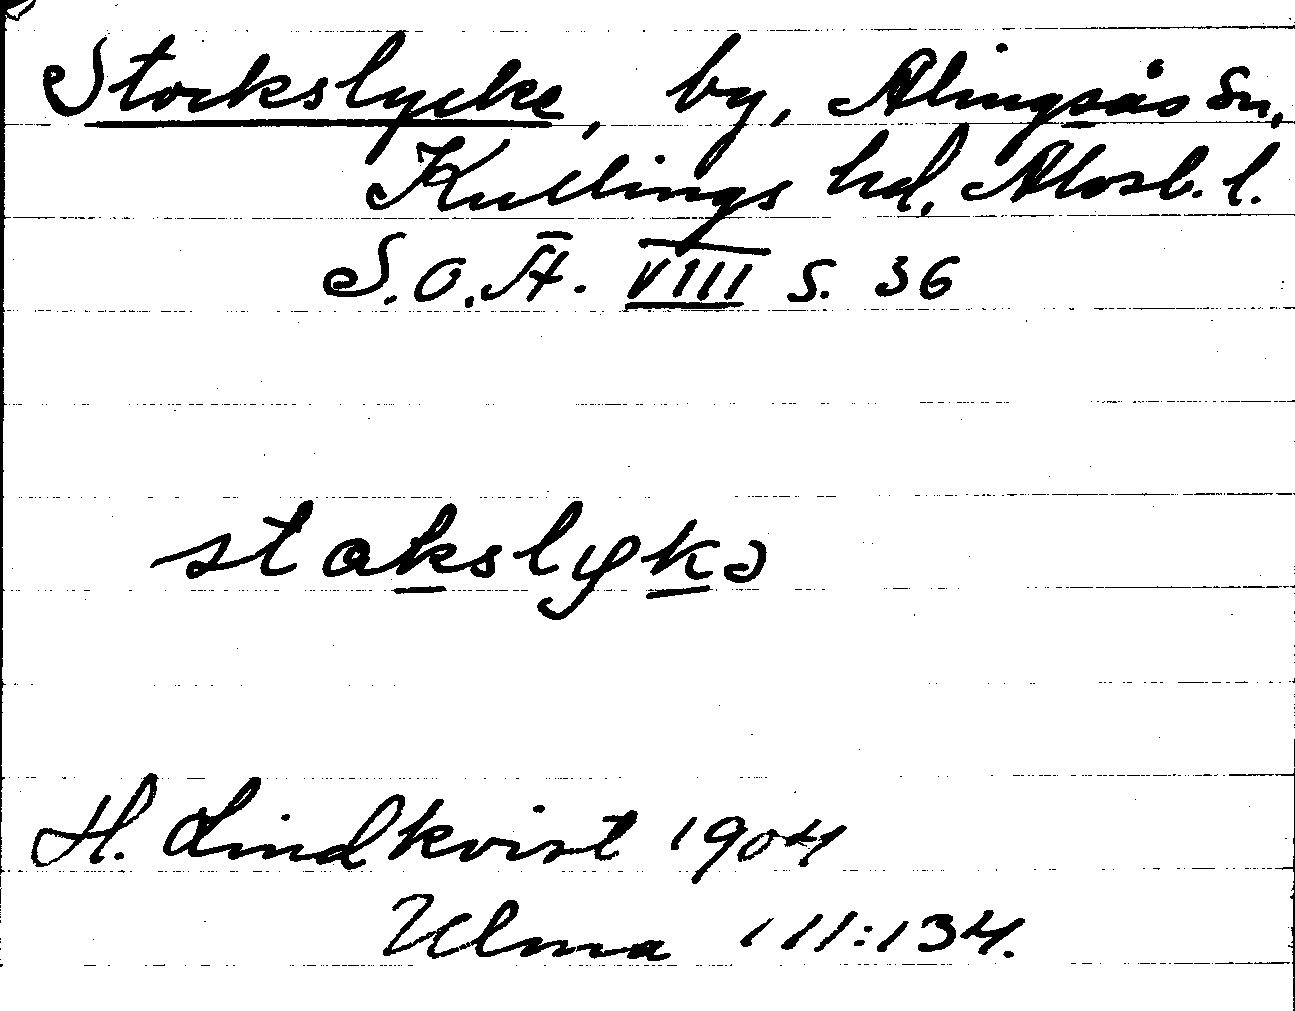 Stockslycke, by, Alingsås sn,
Kullings hd, Älvsb. l.
S.O.Ä. VIII s. 36
stakslykə
H. Lindkvist 1904
Ulma 111:134.